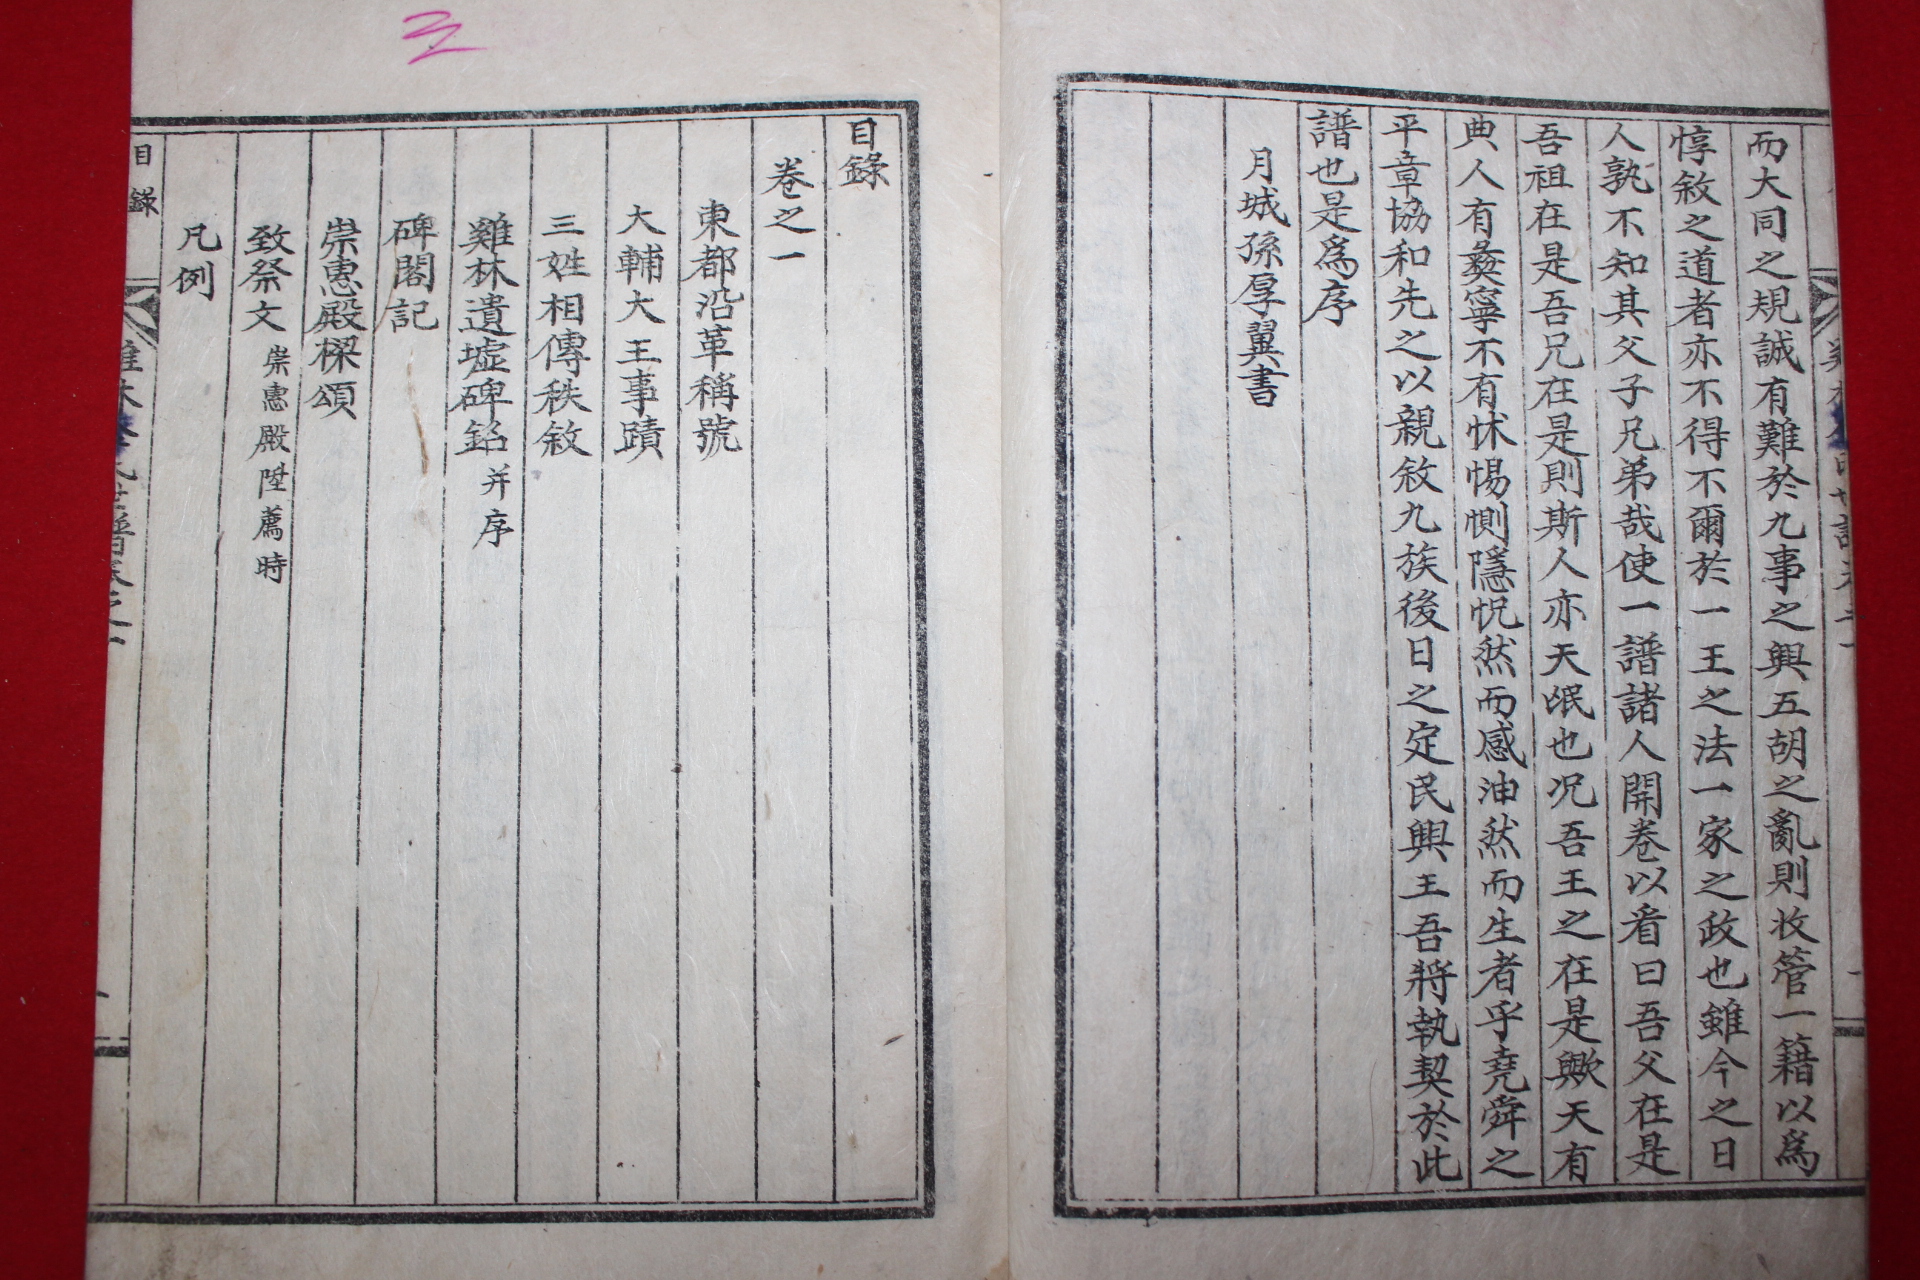 而大同之規誠有難於九事之興五胡之亂則收管一籍以爲
惇敘之道者亦不得不爾於一王之法一家之政也雖今之日
人孰不知其父子兄弟哉使一譜諸人開卷以看曰吾父在是
吾祖在是吾兄在是則斯人亦天氓也况吾王之在是歟天有
典人有彜寧不有怵惕惻隱怳然而感油然而生者乎堯舜之
平章協和先之以親敘九族後日之定民興王吾將執契於此
譜也是爲序
月城孫厚翼書
目錄
卷之一
東都沿革稱號
大輔大王事蹟
三姓相傳秩敘
雞林遺墟碑銘并序
碑閣記
崇惠殿樑頌
致祭文崇惠殿陞薦時
凡例
目錄